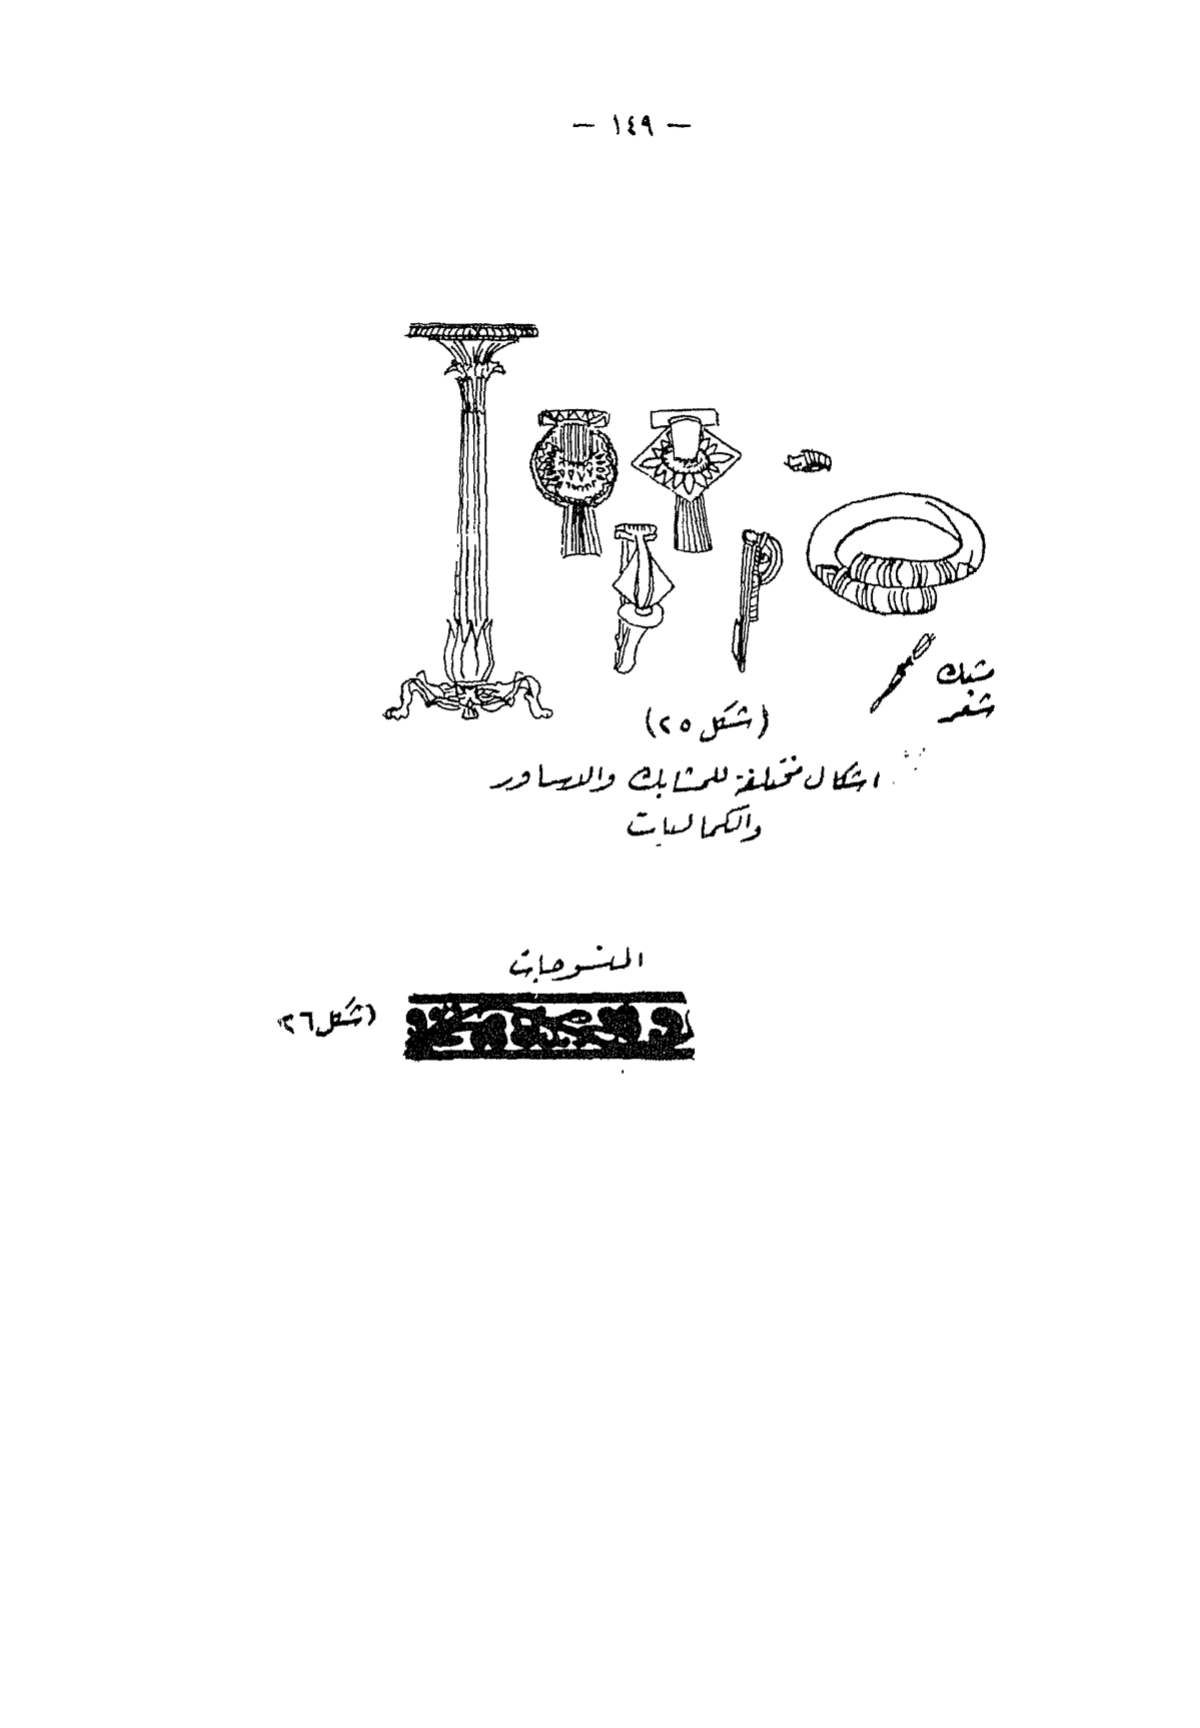 — ١٤٩ —
مشبك
شعر
(شكل ٢٥)
اشكال مختلفة للمشابك والاساور
والكماليات
المنسوجات
(شكل ٢٦